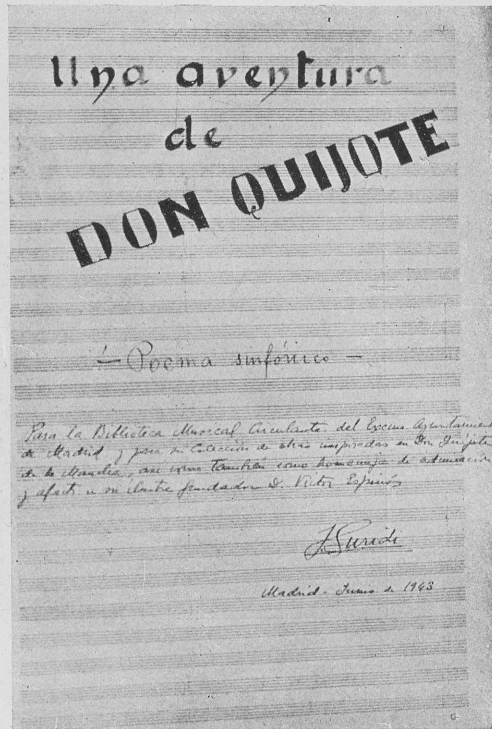 Una aventura
de
DON QUIJOTE
— Poema sinfónico —
Para la Biblioteca Musical Circulante del Excmo Ayuntamiento
de Madrid y para su Colección de obras inspiradas en Don Quijote
de la Mancha, así como también como homenaje de admiración
y afecto a su ilustre fundador D. Victor Espinós
J Guridi
Madrid - Junio de 1943